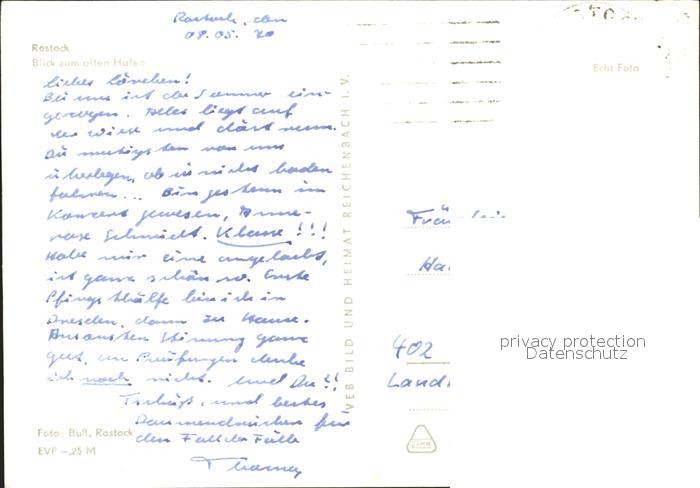 Rostock, den
08.05. 70
Rostock
Blick zum alten Hafen
Echt Foto
liebes Lövchen!
Bei uns ist der Sommer ein-
gezogen. Alles liegt auf
der Wiese und döst rum.
Die mutigsten von uns
überlegen, ob wir nicht baden
fahren... Bin gestern im
Konzert gewesen, Anne-
rose Schmidt. Klasse!!!
Habe mir eine angelacht,
ist ganz schön so. Erste
Pfingsthälfte bin ich in
Dresden, dann zu Hause.
Ansonsten Stimmung ganz
gut, an Prüfungen denke
ich noch nicht. Und Du!!
Tschüß, und bestes
Daumendrücken für
den Fall der Fälle
Thomas
Foto: Buß, Rostock
EVP -,25 M
VEB BILD UND HEIMAT REICHENBACH I. V.
Fräulein
Ha
402
Land
privacy protection
Datenschutz